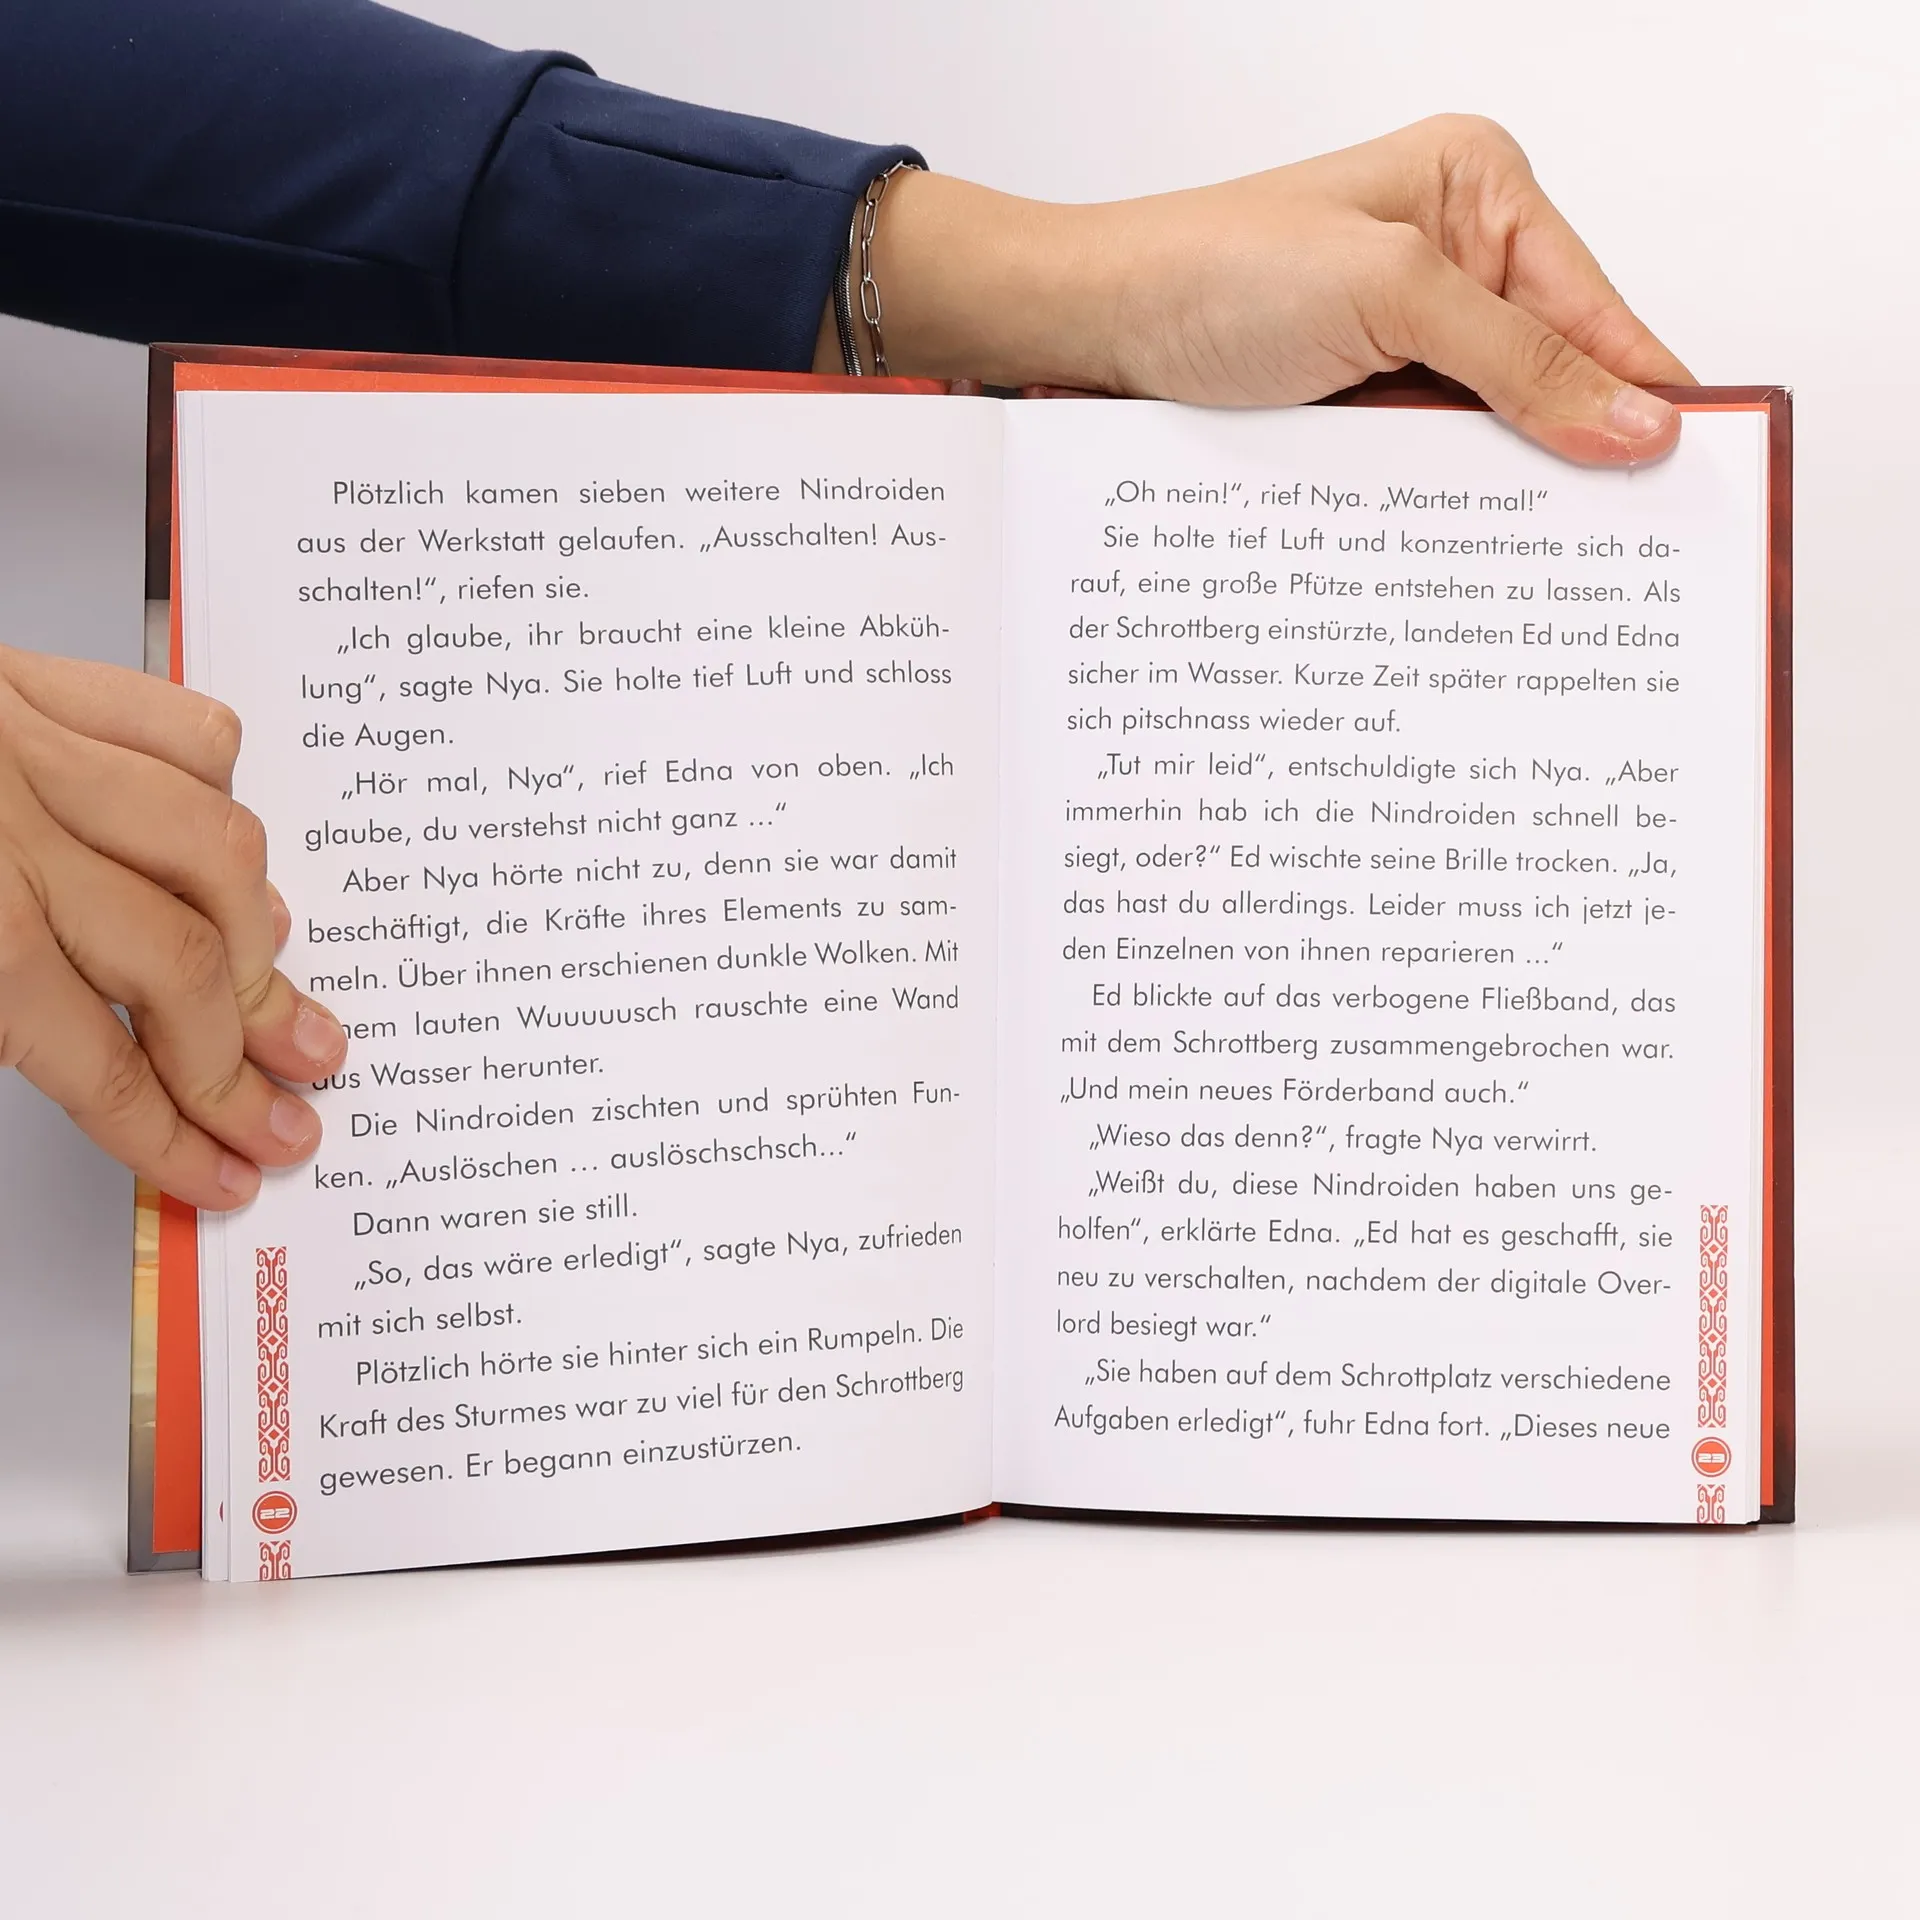 Plötzlich kamen sieben weitere Nindroiden
aus der Werkstatt gelaufen. „Ausschalten! Aus-
schalten!“, riefen sie.
„Ich glaube, ihr braucht eine kleine Abküh-
lung“, sagte Nya. Sie holte tief Luft und schloss
die Augen.
„Hör mal, Nya“, rief Edna von oben. „Ich
glaube, du verstehst nicht ganz ...“
Aber Nya hörte nicht zu, denn sie war damit
beschäftigt, die Kräfte ihres Elements zu sam-
meln. Über ihnen erschienen dunkle Wolken. Mit
lauten Wuuuuusch rauschte eine Wand
aus Wasser herunter.
Die Nindroiden zischten und sprühten Fun-
ken. „Auslöschen ... auslöschschsch...“
Dann waren sie still.
„So, das wäre erledigt“, sagte Nya, zufrieden
mit sich selbst.
Plötzlich hörte sie hinter sich ein Rumpeln. Die
Kraft des Sturmes war zu viel für den Schrottberg
gewesen. Er begann einzustürzen.
22
„Oh nein!“, rief Nya. „Wartet mal!“
Sie holte tief Luft und konzentrierte sich da-
rauf, eine große Pfütze entstehen zu lassen. Als
der Schrottberg einstürzte, landeten Ed und Edna
sicher im Wasser. Kurze Zeit später rappelten sie
sich pitschnass wieder auf.
„Tut mir leid“, entschuldigte sich Nya. „Aber
immerhin hab ich die Nindroiden schnell be-
siegt, oder?“ Ed wischte seine Brille trocken. „Ja,
das hast du allerdings. Leider muss ich jetzt je-
den Einzelnen von ihnen reparieren ...“
Ed blickte auf das verbogene Fließband, das
mit dem Schrottberg zusammengebrochen war.
„Und mein neues Förderband auch.“
„Wieso das denn?“, fragte Nya verwirrt.
„Weißt du, diese Nindroiden haben uns ge-
holfen“, erklärte Edna. „Ed hat es geschafft, sie
neu zu verschalten, nachdem der digitale Over-
lord besiegt war.“
„Sie haben auf dem Schrottplatz verschiedene
Aufgaben erledigt“, fuhr Edna fort. „Dieses neue
23